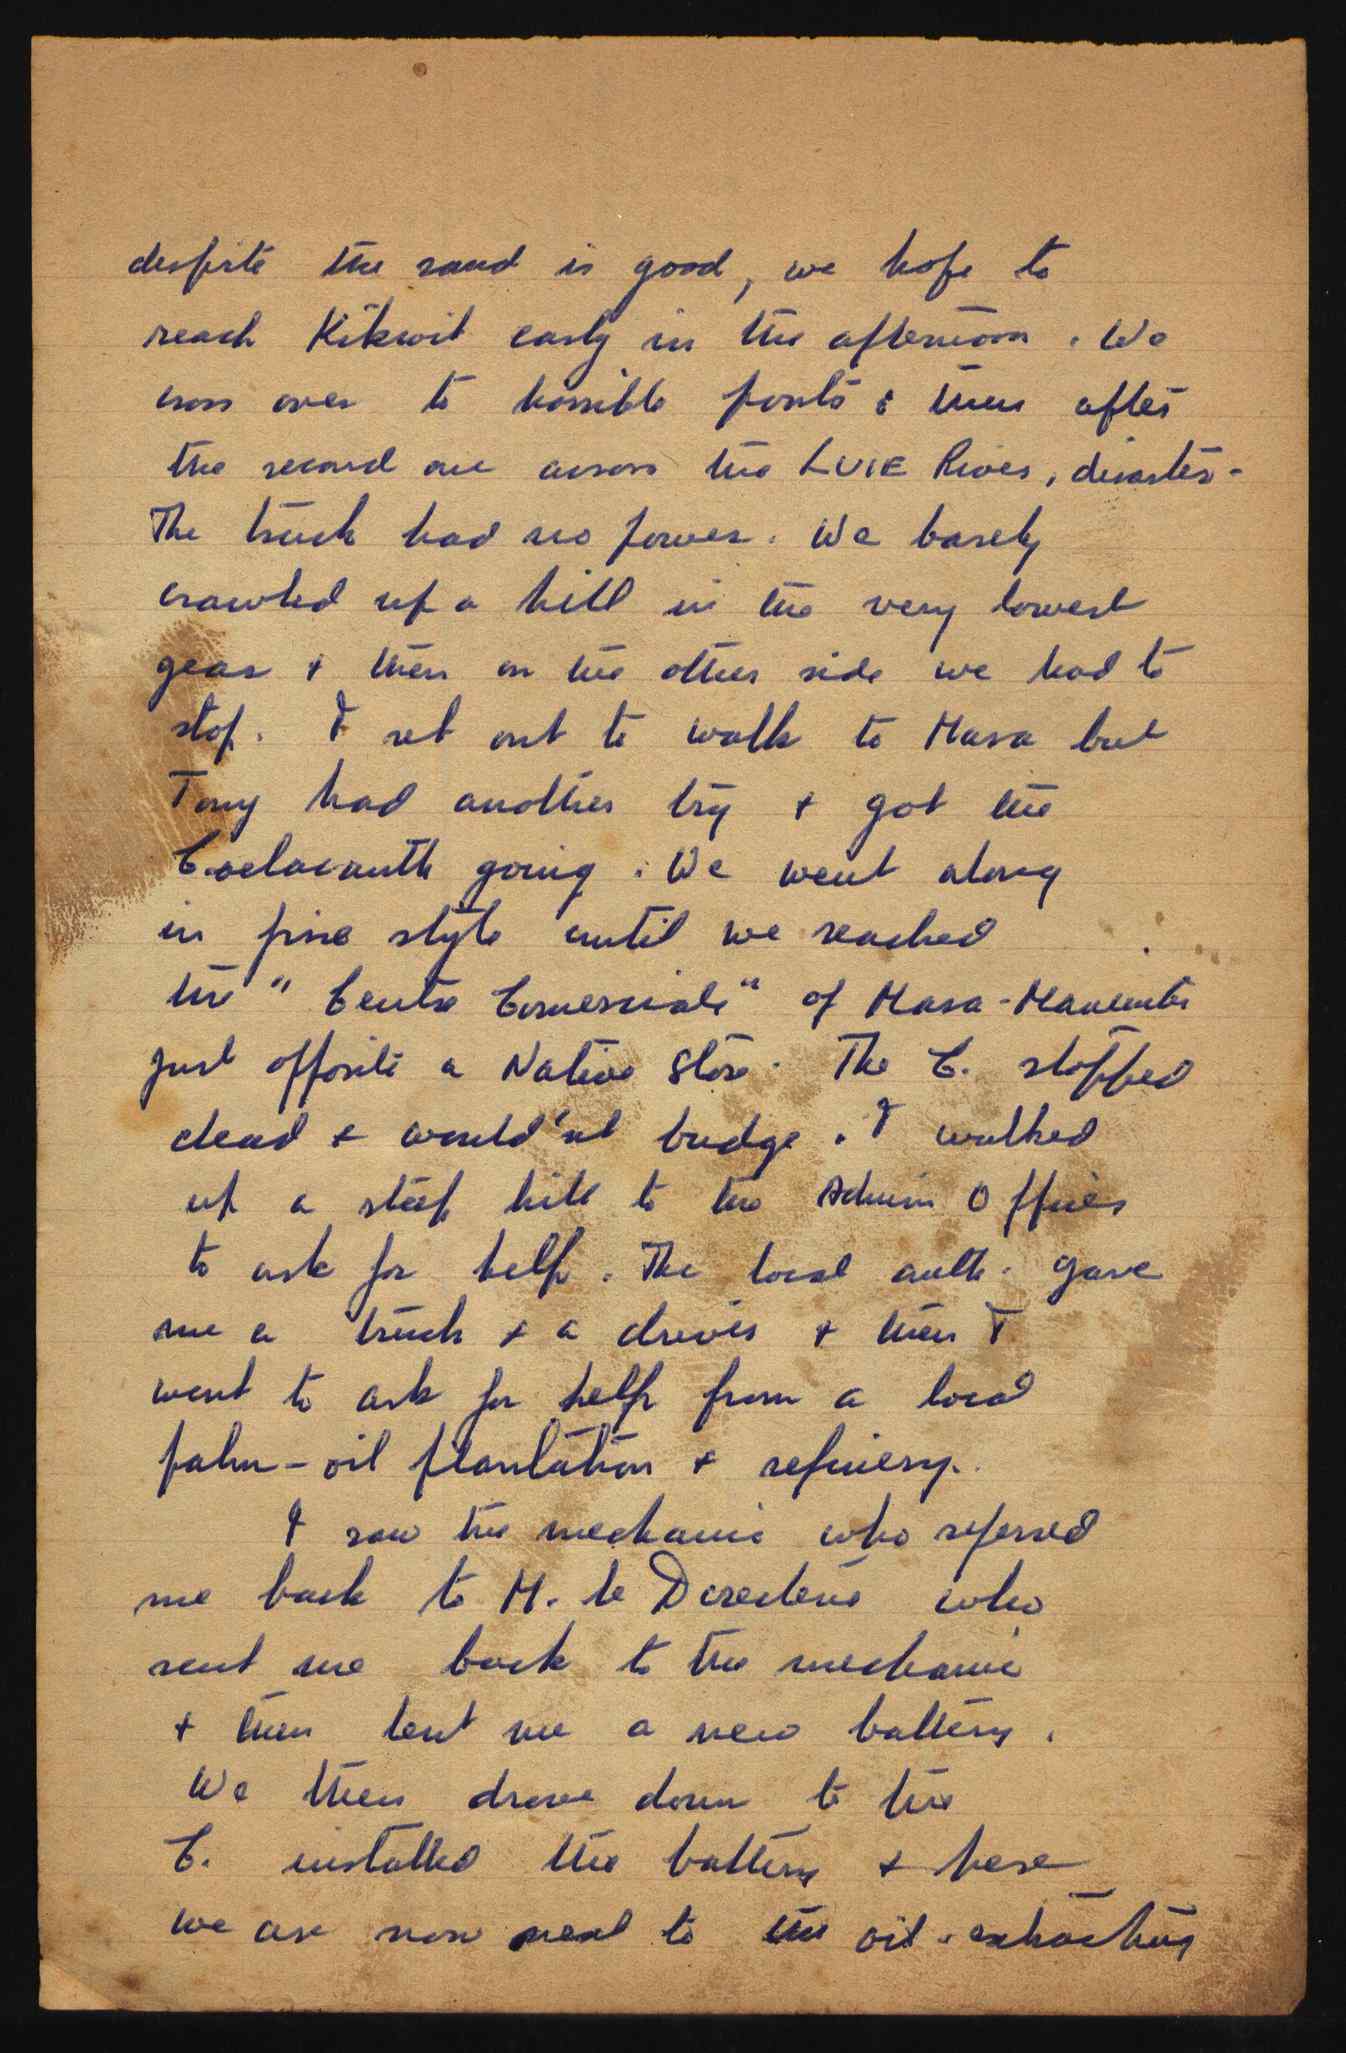 despite the sand is good, we hope to
reach Kikwit early in the afternoon. We
cross over to horrible ponts & then after
the second one across the LUIE River, disaster -
The truck had no power. We barely
crawled up a hill in the very lowest
gear + then on the other side we had to
stop. I set out to walk to Masa but
Tony had another try + got the
Coelacanth going. We went along
in fine style until we reached
the "Centre Comerciale" of Masa-
just opposite a Native Store. The C. stopped
dead + would'nt budge. I walked
up a steep hill to the Admin Offices
to ask for help. The local auth. gave
me a truck + a driver + then I
went to ask for help from a local
palm-oil plantation + refinery.
I saw the mechanic who referred
me back to M. le Directeur who
sent me back to the mechanic
+ then lent me a new battery.
We then drove down to the
C. installed the battery + here
we are now next to the oil-extracting